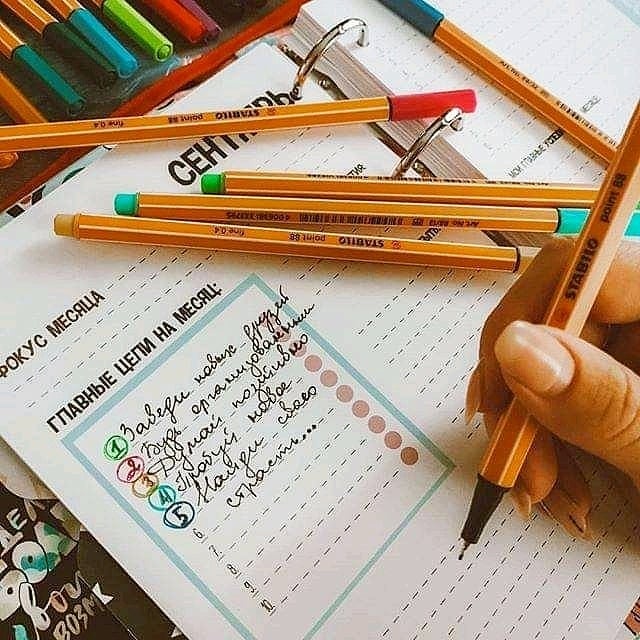 STABILO point 88 fine 0.4
СЕНТЯБРЬ
МОИ ГЛАВНЫЕ
STABILO point 88 fine 0.4
STABILO point 88
ФОКУС МЕСЯЦА
ГЛАВНЫЕ ЦЕЛИ НА МЕСЯЦ:
1 Заведи новых друзей
2 Будь организованным
3 Думай позитивно
4 Пробуй новое
5 Найди свою
страсть...
6
7
8
9
10